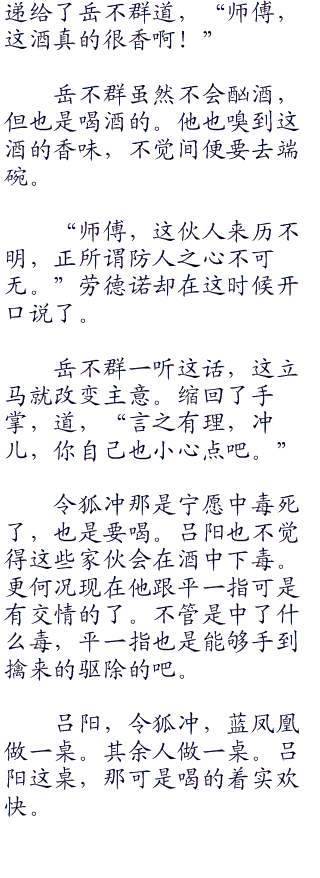 递给了岳不群道，“师傅，
这酒真的很香啊！”
岳不群虽然不会酗酒，
但也是喝酒的。他也嗅到这
酒的香味，不觉间便要去端
碗。
“师傅，这伙人来历不
明，正所谓防人之心不可
无。”劳德诺却在这时候开
口说了。
岳不群一听这话，这立
马就改变主意。缩回了手
掌，道，“言之有理，冲
儿，你自己也小心点吧。”
令狐冲那是宁愿中毒死
了，也是要喝。吕阳也不觉
得这些家伙会在酒中下毒。
更何况现在他跟平一指可是
有交情的了。不管是中了什
么毒，平一指也是能够手到
擒来的驱除的吧。
吕阳，令狐冲，蓝凤凰
做一桌。其余人做一桌。吕
阳这桌，那可是喝的着实欢
快。